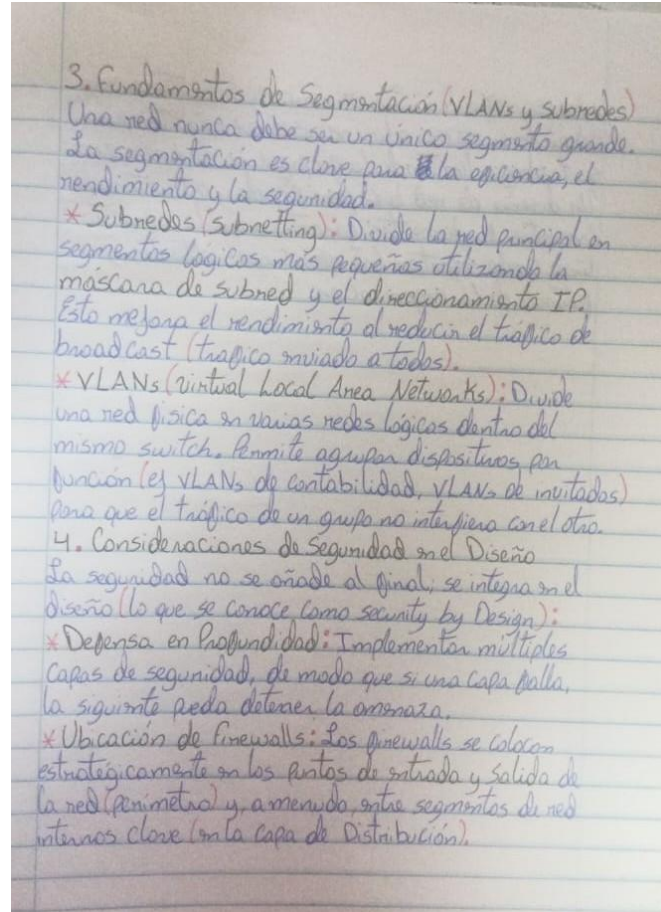 3. Fundamentos de Segmentación (VLANs y subredes)
Una red nunca debe ser un único segmento grande.
La segmentación es clave para la eficiencia, el
rendimiento y la seguridad.
* Subredes (subnetting): Divide la red principal en
segmentos lógicos más pequeñas utilizando la
máscara de subred y el direccionamiento IP.
Esto mejora el rendimiento al reducir el tráfico de
broadcast (trafico enviado a todos).
* VLANs (virtual Local Area Networks): Divide
una red física en varias redes lógicas dentro del
mismo switch. Permite agrupar dispositivos por
función (ej VLANs de contabilidad, VLANs de invitados)
para que el tráfico de un grupo no interfiera con el otro.
4. Consideraciones de Seguridad en el Diseño
La seguridad no se añade al final; se integra en el
diseño (lo que se conoce como security by Design):
* Defensa en Profundidad: Implementar múltiples
capas de seguridad, de modo que si una capa falla,
la siguiente pueda detener la amenaza.
* Ubicación de firewalls: Los firewalls se colocan
estratégicamente en los puntos de entrada y salida de
la red (perímetro) y, a menudo, entre segmentos de red
internos clave (en la capa de Distribución).